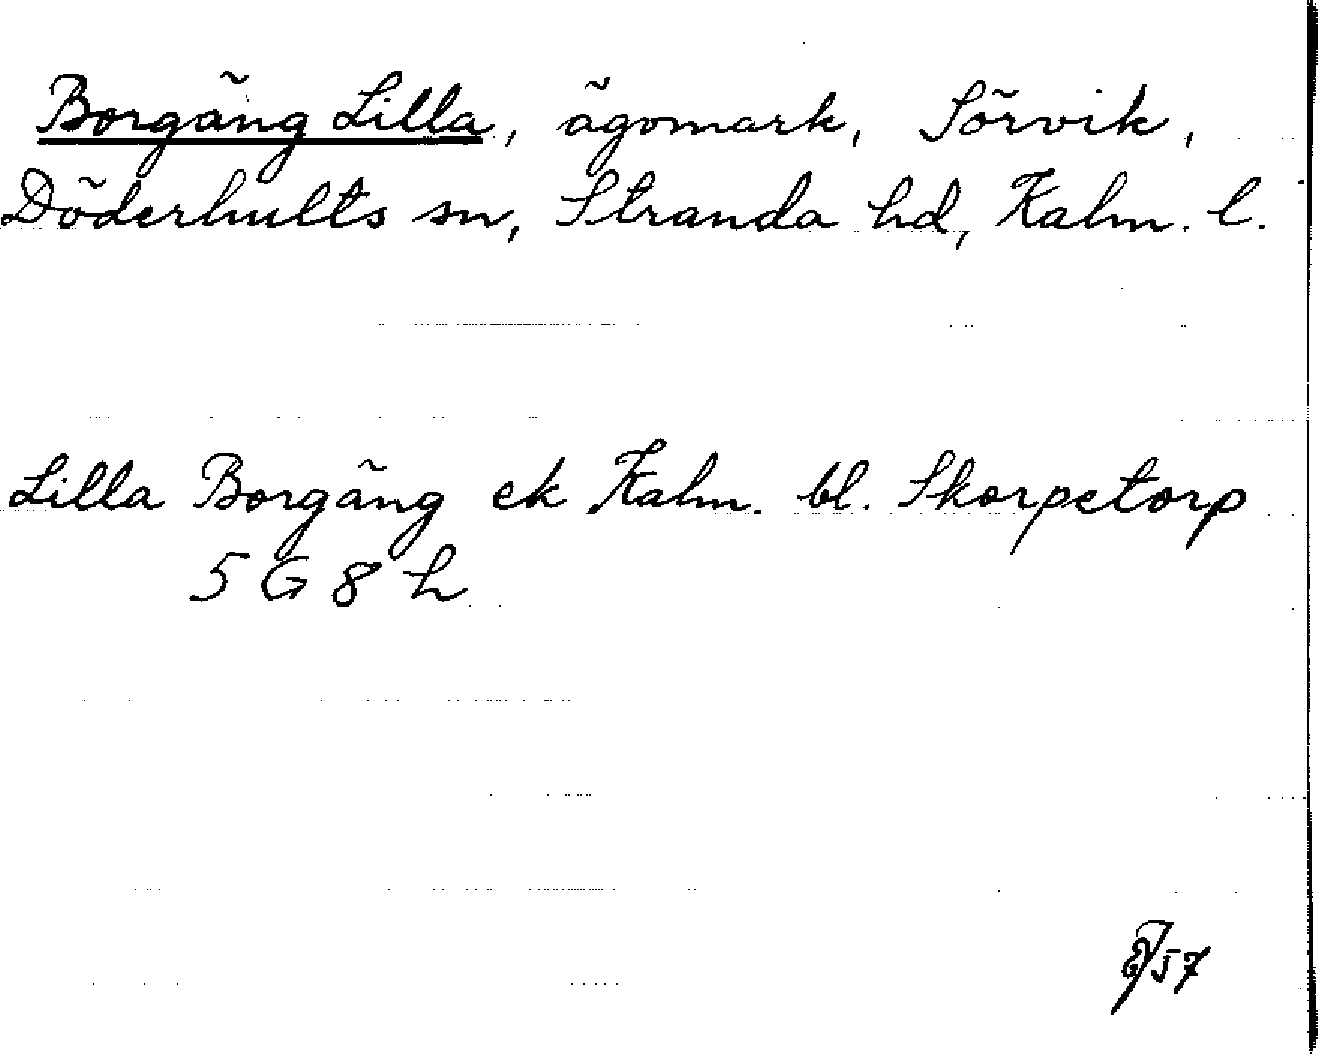 Borgäng Lilla, ägomark, Sörvik,
Döderhults sn, Stranda hd, Kalm. l.
Lilla Borgäng ek Kalm. bl. Skorpetorp
5 G 8 h
57